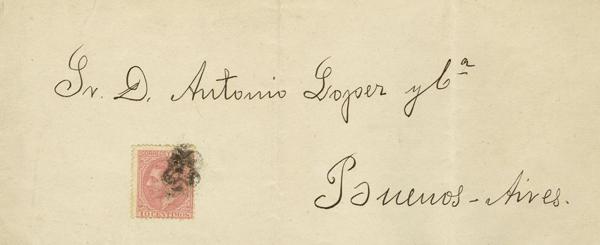 Sr. D. Antonio Lopez y Cª
Buenos-Aires.
10 CENTIMOS